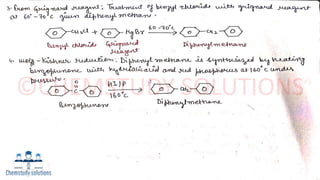 3. From Grignard reagent: Treatment of benzyl chloride with grignard reagent
at 60°-70°C gives diphenyl methane.
CH2Cl + MgBr 60-70°C CH2
Benzyl chloride Grignard reagent Diphenylmethane
4. Wolf-Kishner reduction: Diphenyl methane is synthesized by heating
benzophenone with hydroiodic acid and red phosphorus at 160°C under
pressure.
O
C HI/P CH2
160°C
Benzophenone Diphenylmethane
©CHEMSTUDY SOLUTIONS
Chemstudy solutions